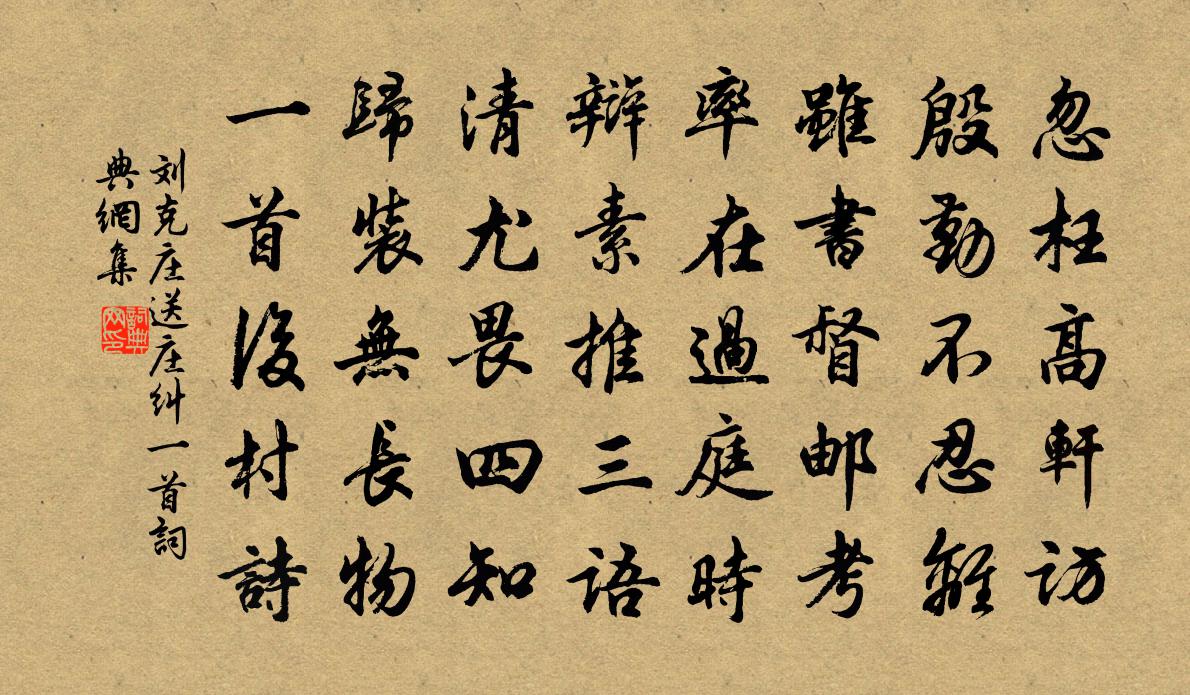 忽枉高軒訪
殷勤不忍離
雖書督邮考
率在過庭時
辯素推三語
清尤畏四知
歸裝無長物
一首後村詩
刘克庄送庄糾一首詞
典網集
詞典
网印